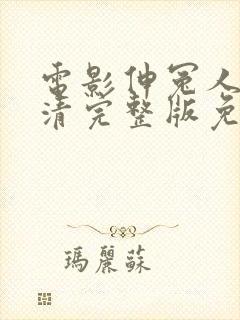 電影伸冤人
清完整版免
瑪麗蘇